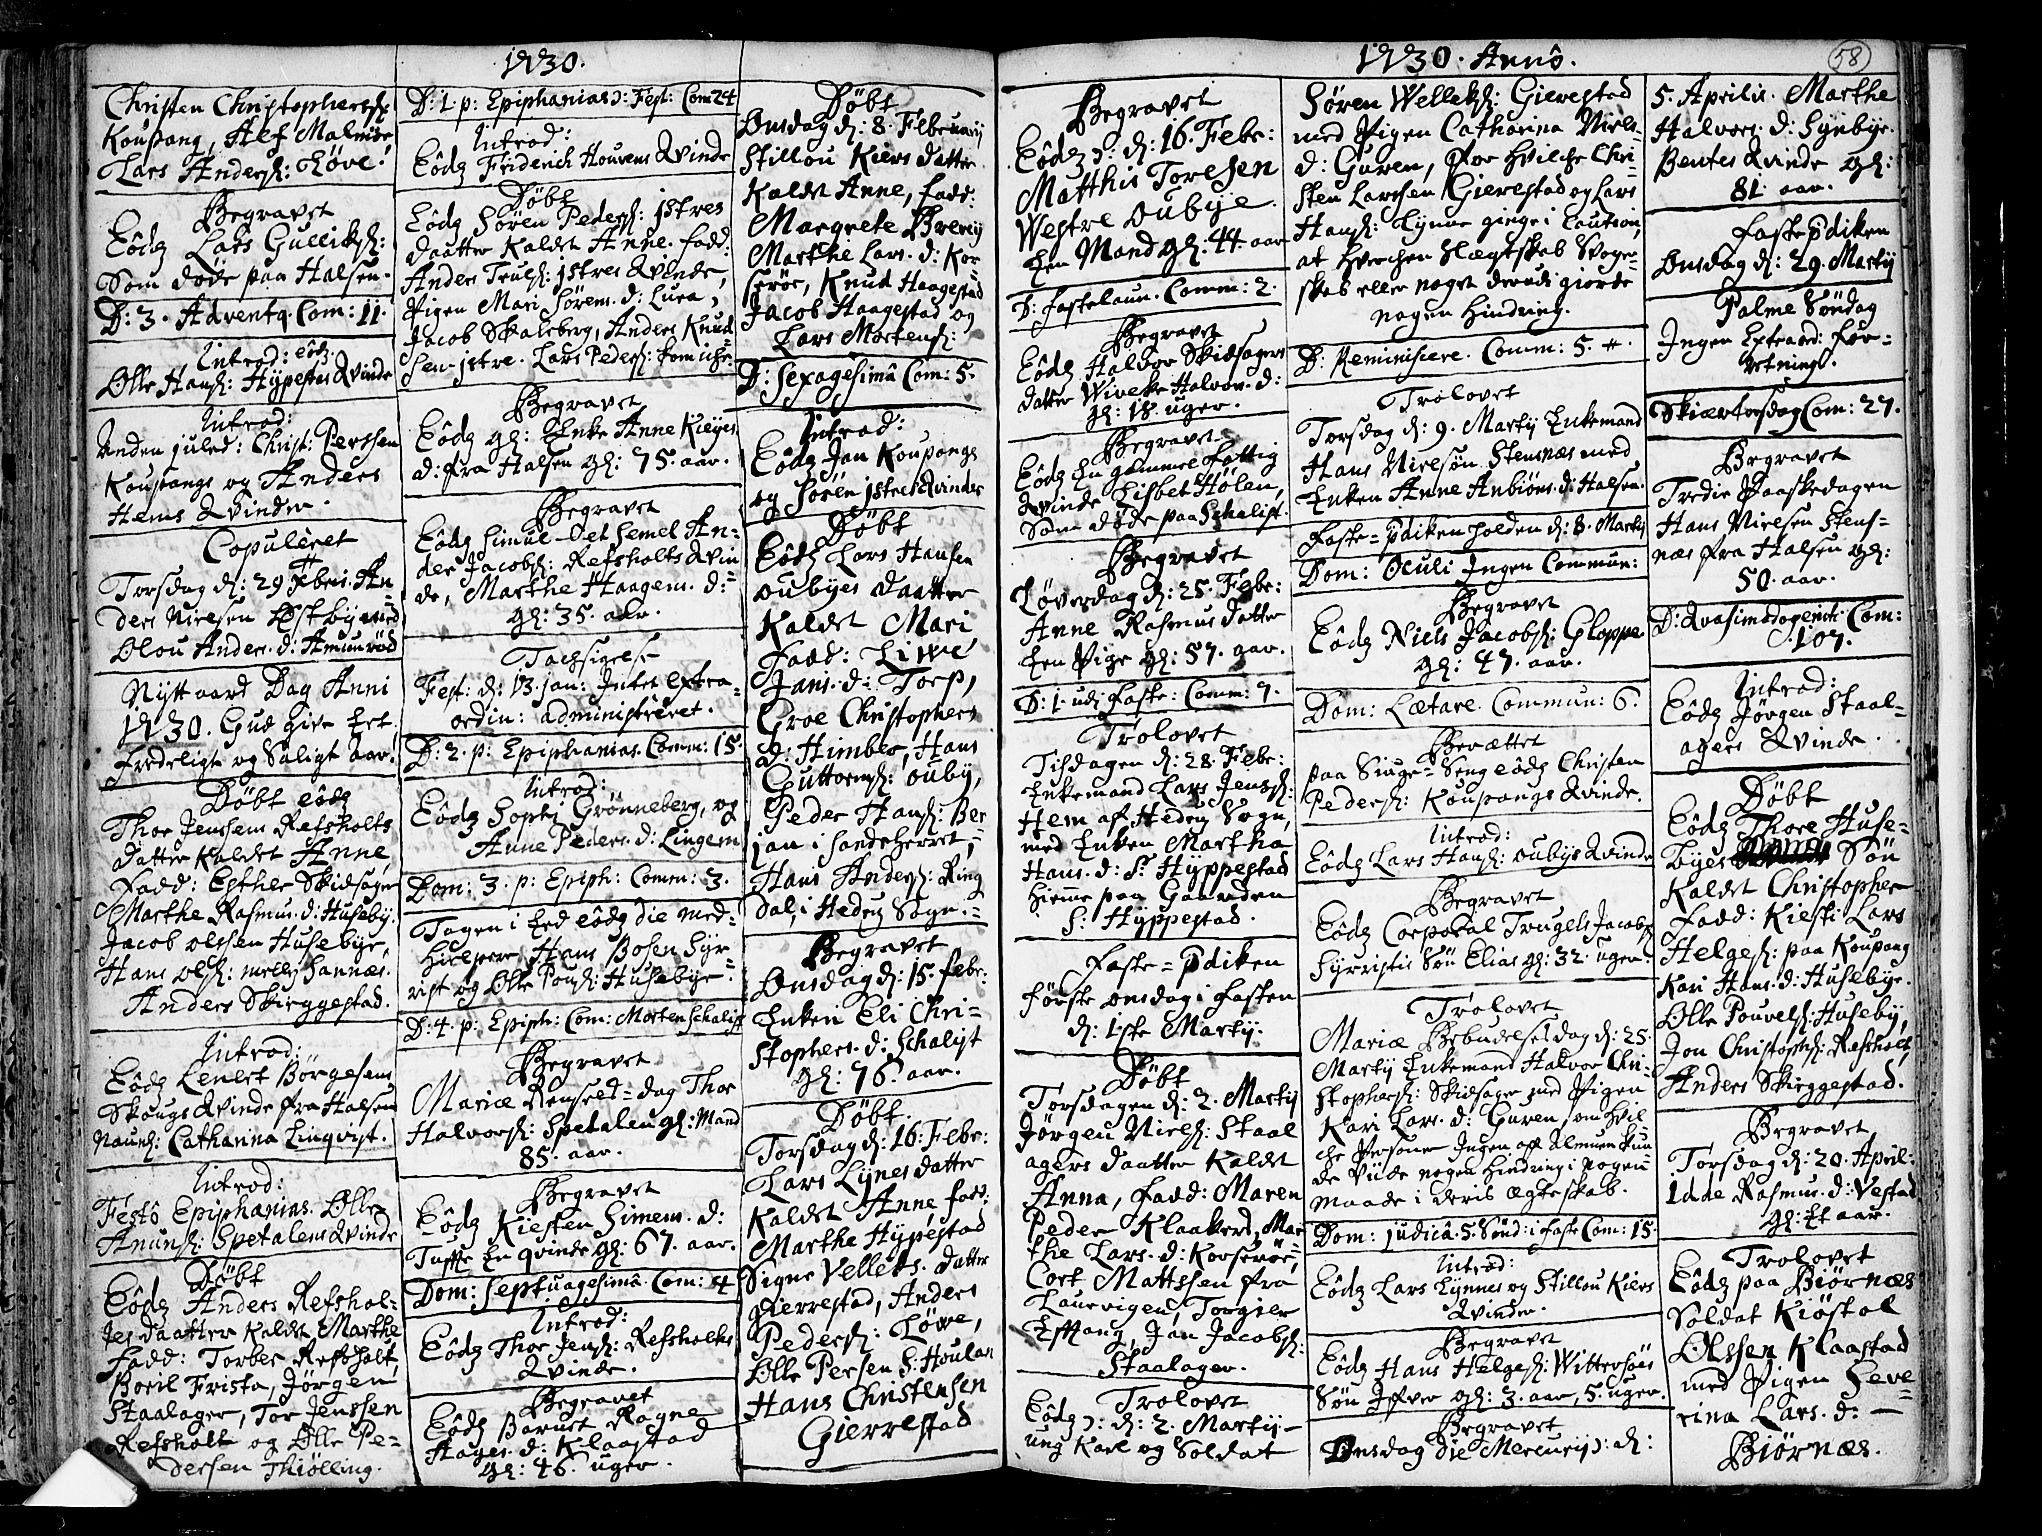 1730.
Christen Christophersß:
Koupang, Alf Malmøe
Lars Andersß: Løve.
Begravet
Eôdẽ Lars Gulliksß:
Som døde paa Halsen.
D: 3. Adventq. Com: 11.
Introd: eôdẽ
Olle Hansß: Hÿpestes Qvinde
Introd:
Anden juled: Christ: Perssen
Koupangs og Anders
Hems Qvinder.
Copuleret
Torsdag d: 29 Xbris. An
ders Nielsen Østby med
Olou Anders. d: Amunrød
Nÿtt aars Dag Anni
1730. Gud give Et
fredeligt og Saligt Aar.
Døbt eôdẽ
Thor Jenssens Refsholts
datter kaldet Anne,
Fadd: Esther Skidsager
Marthe Rasmus. d: Huseby.
Jacob olssen Husebye,
Hans olsß: melly Sannæs.
Anders Skirggestad.
Introd:
Eôdẽ Lenert Børgesens
Skougs Qvinde fra Halsen
Naunß: Catharina Linqvist.
Introd:
Festô Epiphanias. Olle
Anunsß: Spetalens Qvinde
Døbt
Eôdẽ Anders Refshol-
tes daatter kaldet Marthe
Fadd: Torber Refsholt,
Boril Frista, Jørgen
Staalager, Tor Jenssen
Refsholt og Olle Pe-
dersen Thiølling.
D: 1. p: Epiphanias ɔ: Fest: Com 24
Introd:
Eôdẽ Friderich Houvens Qvinde
Døbt
Eôdẽ Søren Pedersß: jstres
daatter kaldet Anne. fadd:
Anders Truls: jstres Qvinde,
Pigen Mari Sørens. d: Lura,
Jacob Skalsberg, Anders Knud
sen jstre. Lars Pedersß: kom iche.
Begravet
Eôdẽ gl: Enke Anne Kieÿes
d: fra Halsen gl: 75. aar.
Begravet
Eôdẽ Simul et Semel An-
ders Jacobsß: Refsholts Qvin
de, Marthe Haagens. d:
gl: 35. aar.
Tachsigelse
Fest: d: 13. jan: Intet extra-
ordin: administreret.
D: 2. p: Epiphanias. Comm: 15.
Introd:
Eôdẽ Sophj Grønneberg, og
Anne Peders. d: Lingem
Dom: 3. p: Epiph: Comm: 3.
Tagen i Eed eôdẽ die med-
hielpere Hans Bosen Sÿr-
rist og Olle Poulß: Husebye
D: 4. p: Epiph: Com: Morten Schalist
Begravet
Mariæ Renselß-dag Thor
Halvorsß: Spetalen gl: Mand
85. aar.
Begravet
Eôdẽ Kiesten Simens. d:
Tuffte En qvinde gl: 67. aar.
Dom: Septuagesimâ. Com: 4
Introd:
Eôdẽ Thor Jensß: Refsholts
Qvinde.
Begravet
Eôdẽ Barnet Ragne
Hages. d: Klaastad
gl: 46. uger.
Døbt
Onsdag d: 8. Februarij
Stillou Kiers datter
kaldet Anne, fadd:
Margrete Brevig
Marthe Lars. d: Kor-
serøe, Knud Haagestad
Jacob Haagestad og
Lars Mortensß:
D: Sexagesimâ Com: 5.
Introd:
Eôdẽ Jan Koupangs
og Søren jstres Qvinder
Døbt
Eôdẽ Lars Hansen
oubÿes daatter
kaldet Mari
Fadd: Liwe
Jans. d: Torp,
Groe Christophers
d: Himber, Hans
Guttormsß: oubÿ,
Peder Hansß: Ber
jan i Sandeherret,
Hans Andersß: Ring
dal, i Hedrẽ Sogn.
Begravet
Onsdag d: 15. febr:
Enken Eli Chri-
stophers. d: Schalist
gl: 76. aar.
Døbt.
Torsdag d: 16. Febr:
Lars Lÿnes datter
kaldet Anne, fadd:
Marthe Hÿpestad
Signe Velleks. datter
gierrestad, Anders
Pedersß: Løwe,
Olle Persen S: Houlan
Hans Christensen
Gierrestad
1730. Annô.
58
Begravet
Eôdẽ ɔ: d: 16. Febr:
Matthis Toresen
Westre oubÿe
Een Mand gl: 44. aar
D: fastelaun. Comm: 2.
Begravet
Eôdẽ Halvor Skidsagers
datter Wiveke Halvor. d:
gl: 18. uger.
Begravet
Eôdẽ En gammel fattig
Qvinde Lisbet Hølen,
Som døde paa Schalist.
Begravet
Løverdag d: 25. Febr:
Anne Rasmus datter
Een Pige gl: 57. aar.
D: 1. udi faste: Comm: 7.
Trolovet
Tisdagen d: 28. Febr:
Enkemand Lars Jensß:
Hem af Hedrẽ Sogn,
med Enken Martha
Hans. d: S: Hÿppestad
hiemme paa Gaarden
S: Hÿppestad.
Faste-pdiken
første onsdag i fasten
d: 1ste Martij.
Døbt
Torsdagen d: 2. Martij
Jørgen Nielsß: Staal
agers daatter kaldet
Anna, fadd: Maren
Peder Klaakers, Mar
the Lars. d: Korserøe,
Cort Matthsen fra
Laurvigen, Torgier
Efftang, Jan Jacobsß:
Staalager.
Trolovet
Eôdẽ ɔ: d: 2. Martij
ung Karl og Soldat
Søren Welleksß: Gierestad
med Pigen Catharina Niels-
d: Guren, for hvilche Chri-
sten Larssen Gierestad og Lars
Hansß: Lÿnne ginge i Caution,
at hverchen Slægtskab Svoger-
skab eller noget derudi giorde
nogen hindring.
D: Reminiscere. Comm: 5.
Trolovet
Torsdag d: 9. Martij Enkemand
Hans Nielsøn Stensnæs med
Enken Anne Anbiøns. d: Halsen.
Faste-pdiken holden d: 8. Martij
Dom: Oculi Ingen Commun:
Begravet
Eôdẽ Niels Jacobsß: Gloppe
gl: 47. aar.
Dom: Lætare. Commun: 6.
Berættet
paa Siuge-Seng eôdẽ Christen
Pedersß: Koupangs Qvinde.
Introd:
Eôdẽ Lars Hansß: oubÿs Qvinde
Begravet
Eôdẽ Corporal Trugels Jacobsß
Sÿrristis Søn Elias gl: 32. uger.
Trolovet
Mariæ Bebudelses dag d: 25.
Martij Enkemand Halvor Chri-
stophersß: Skidsager med Pigen
Kari Lars. d: Guren, om hvil-
che Personer Ingen aff Almuen kun-
de viide nogen hindring i nogen
maade i deris ægteskab.
Dom: judicâ. 5. Sønd: i faste Com: 15.
Introd:
Eôdẽ Lars Lÿnnes og Stillou Kiers
Qvinder.
Begravet
Eôdẽ Hans Helgesß: Wittersøes
Søn Ifver gl: 3. aar, 5. uger.
Begravet
Onsdag die Mercurij ɔ: d:
5. Aprilis. Marthe
Halvors. d: Sÿnbÿe.
Bentes Qvinde gl:
81. aar.
Faste pdiken
Onsdag d: 29. Martij
Palme Søndag
Ingen Extraord: For-
retning.
Skiærtorsdag Com: 27.
Begravet
Tredie Paaskedagen
Hans Nielsen Stens-
næs fra Halsen gl:
50. aar.
D: Qvasimodogenit: Com:
107.
Introd:
Eôdẽ Jørgen Staal-
agers Qvinde.
Døbt
Eôdẽ Thore Huse-
bÿes Søn
kaldet Christopher
Fadd: Kiesti Lars
Helgesß: paa Koupang
Kari Hans. d: Husebÿe.
Olle Pouvelsß: Husebÿ,
Jon Christophsß: Refsholt,
Anders Skirggestad.
Begravet
Torsdag d: 20. April:
Idde Rasmus. d: Vestad
gl: Et aar.
Trolovet
Eôdẽ paa Biørnæs
Soldat Kiøstol
Olssen Klaastad
med Pigen Seve-
rina Lars. d:
Biørnæs.